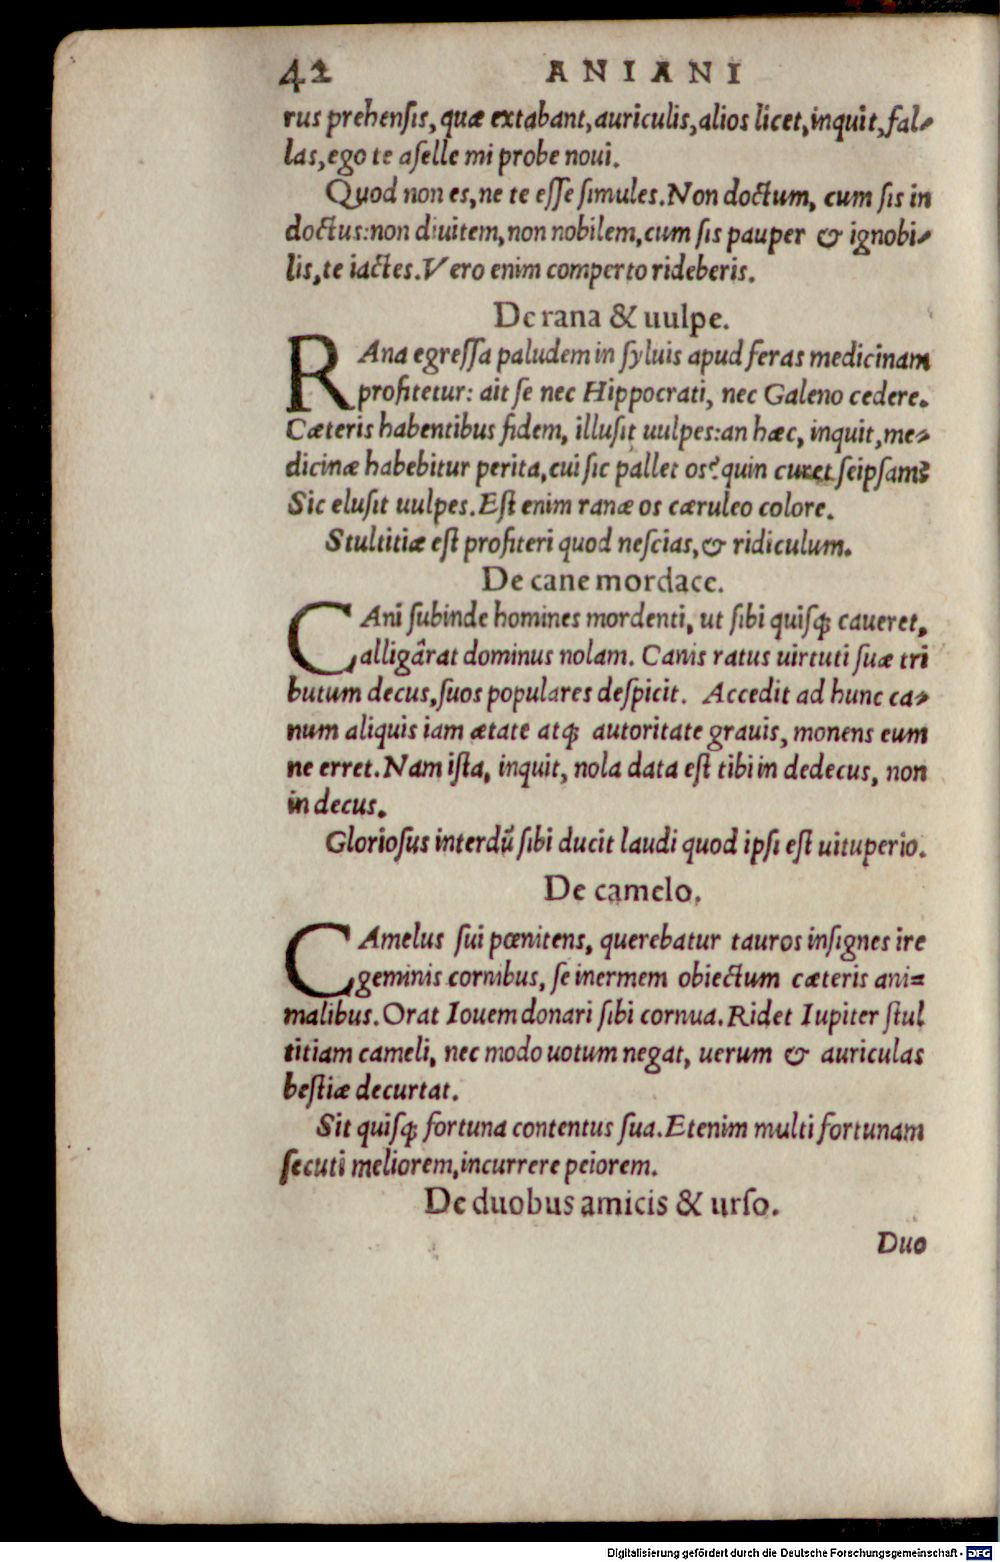 42 ANIANI
rus prehenſis, quæ extabant, auriculis, alios licet, inquit, fal-
las, ego te aſelle mi probe noui.
Quod non es, ne te eſſe ſimules. Non doctum, cum ſis in
doctus: non diuitem, non nobilem, cum ſis pauper & ignobi-
lis, te iactes. Vero enim comperto rideberis.
De rana & uulpe.
RAna egreſſa paludem in ſyluis apud feras medicinam
profitetur: ait ſe nec Hippocrati, nec Galeno cedere.
Cæteris habentibus fidem, illuſit uulpes: an hæc, inquit, me-
dicinæ habebitur perita, cui ſic pallet os? quin curet ſeipſam?
Sic eluſit uulpes. Eſt enim ranæ os cæruleo colore.
Stultitiæ eſt profiteri quod neſcias, & ridiculum.
De cane mordace.
CAni ſubinde homines mordenti, ut ſibi quiſq; caueret,
alligârat dominus nolam. Canis ratus uirtuti ſuæ tri
butum decus, ſuos populares deſpicit. Accedit ad hunc ca-
num aliquis iam ætate atq; autoritate grauis, monens eum
ne erret. Nam iſta, inquit, nola data eſt tibi in dedecus, non
in decus.
Glorioſus interdū ſibi ducit laudi quod ipſi eſt uituperio.
De camelo.
CAmelus ſui pœnitens, querebatur tauros inſignes ire
geminis cornibus, ſe inermem obiectum cæteris ani=
malibus. Orat Iouem donari ſibi cornua. Ridet Iupiter ſtul
titiam cameli, nec modo uotum negat, uerum & auriculas
beſtiæ decurtat.
Sit quiſq; fortuna contentus ſua. Etenim multi fortunam
ſecuti meliorem, incurrere peiorem.
De duobus amicis & urſo.
Duo
Digitalisierung gefördert durch die Deutsche Forschungsgemeinschaft - DFG